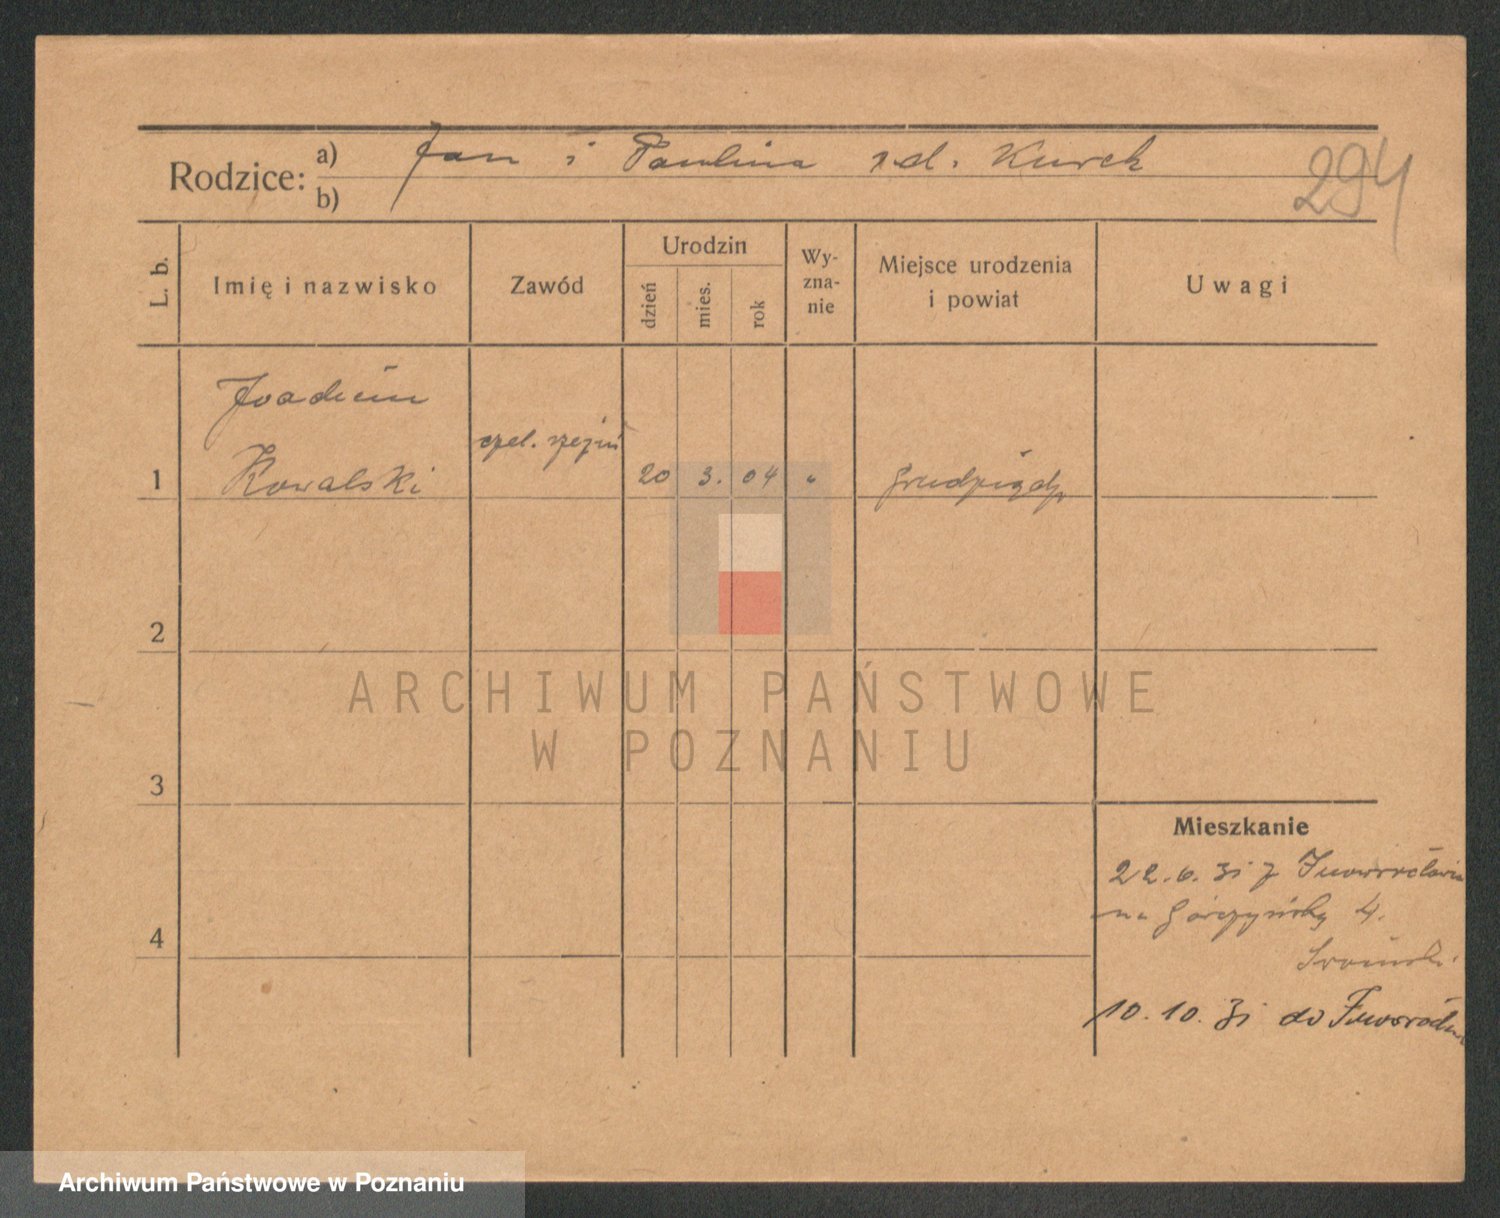 Rodzice: a) Jan i Paulina zd. Kurek
b)
294
L. b.
Imię i nazwisko
Zawód
Urodzin
dzień
mies.
rok
Wy-
zna-
nie
Miejsce urodzenia
i powiat
Uwagi
Joachim
czel.
1 Kowalski 20 3. 04 " Grudziądz
2
ARCHIWUM PAŃSTWOWE
W POZNANIU
3
Mieszkanie
22.6.31 z Inowrocławia
na Górczyńską 4.
4
10.10.31 do
Archiwum Państwowe w Poznaniu